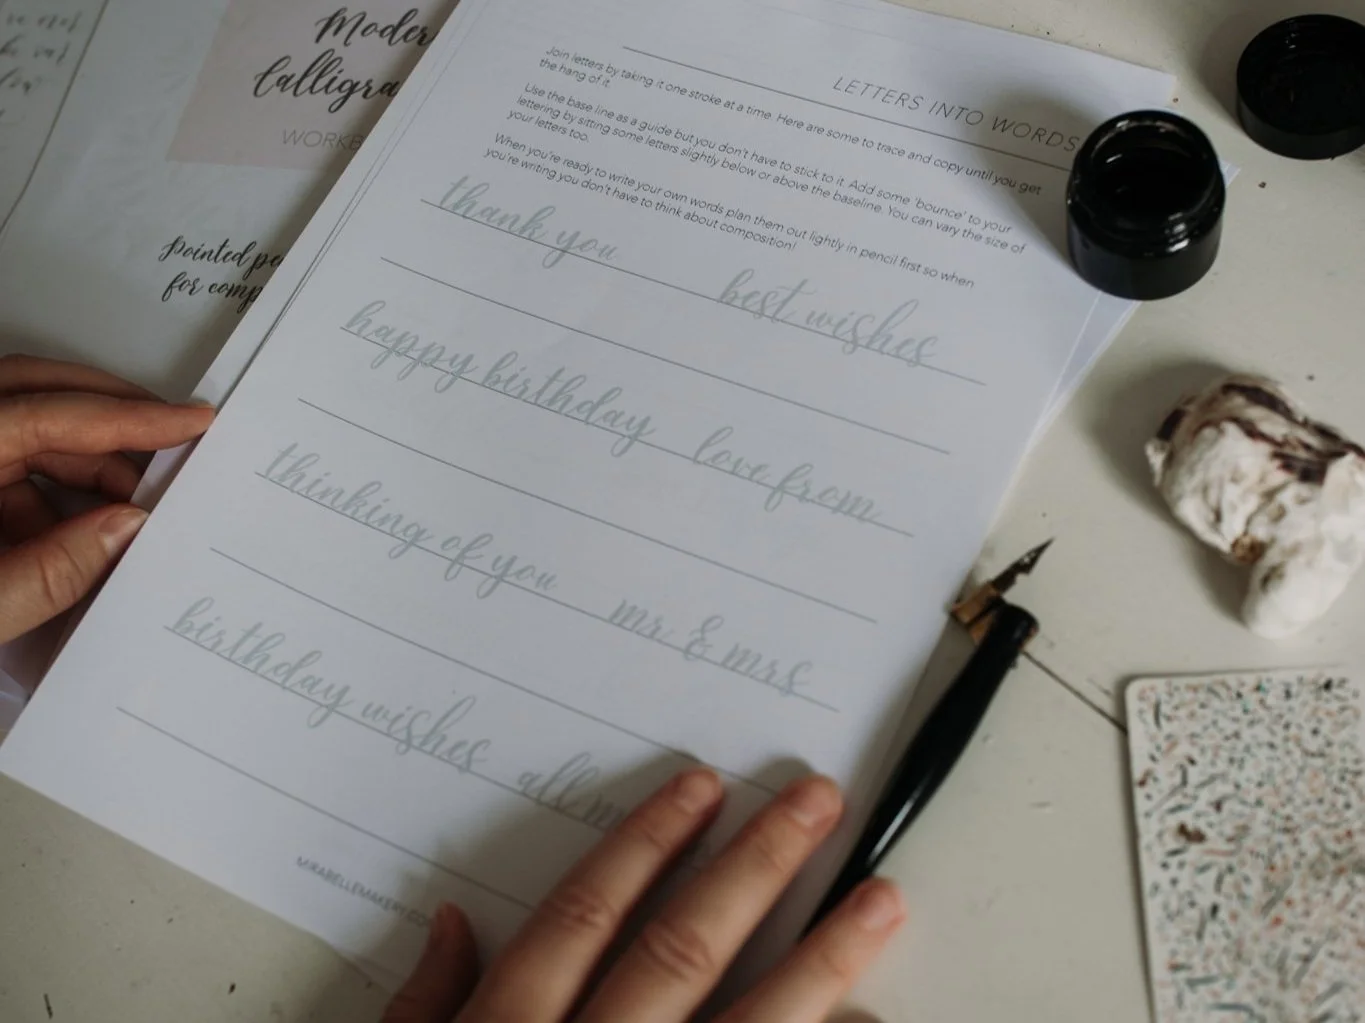 Moder
Calligra
WORKB
Pointed pe
for comp
LETTERS INTO WORDS
Join letters by taking it one stroke at a time. Here are some to trace and copy until you get
the hang of it.
Use the base line as a guide but you don't have to stick to it. Add some 'bounce' to your
lettering by sitting some letters slightly below or above the baseline. You can vary the size of
your letters too.
When you're ready to write your own words plan them out lightly in pencil first so when
you're writing you don't have to think about composition!
thank you best wishes
happy birthday love from
thinking of you mr & mrs
birthday wishes all m
MIRABELLEMAKERY.CO